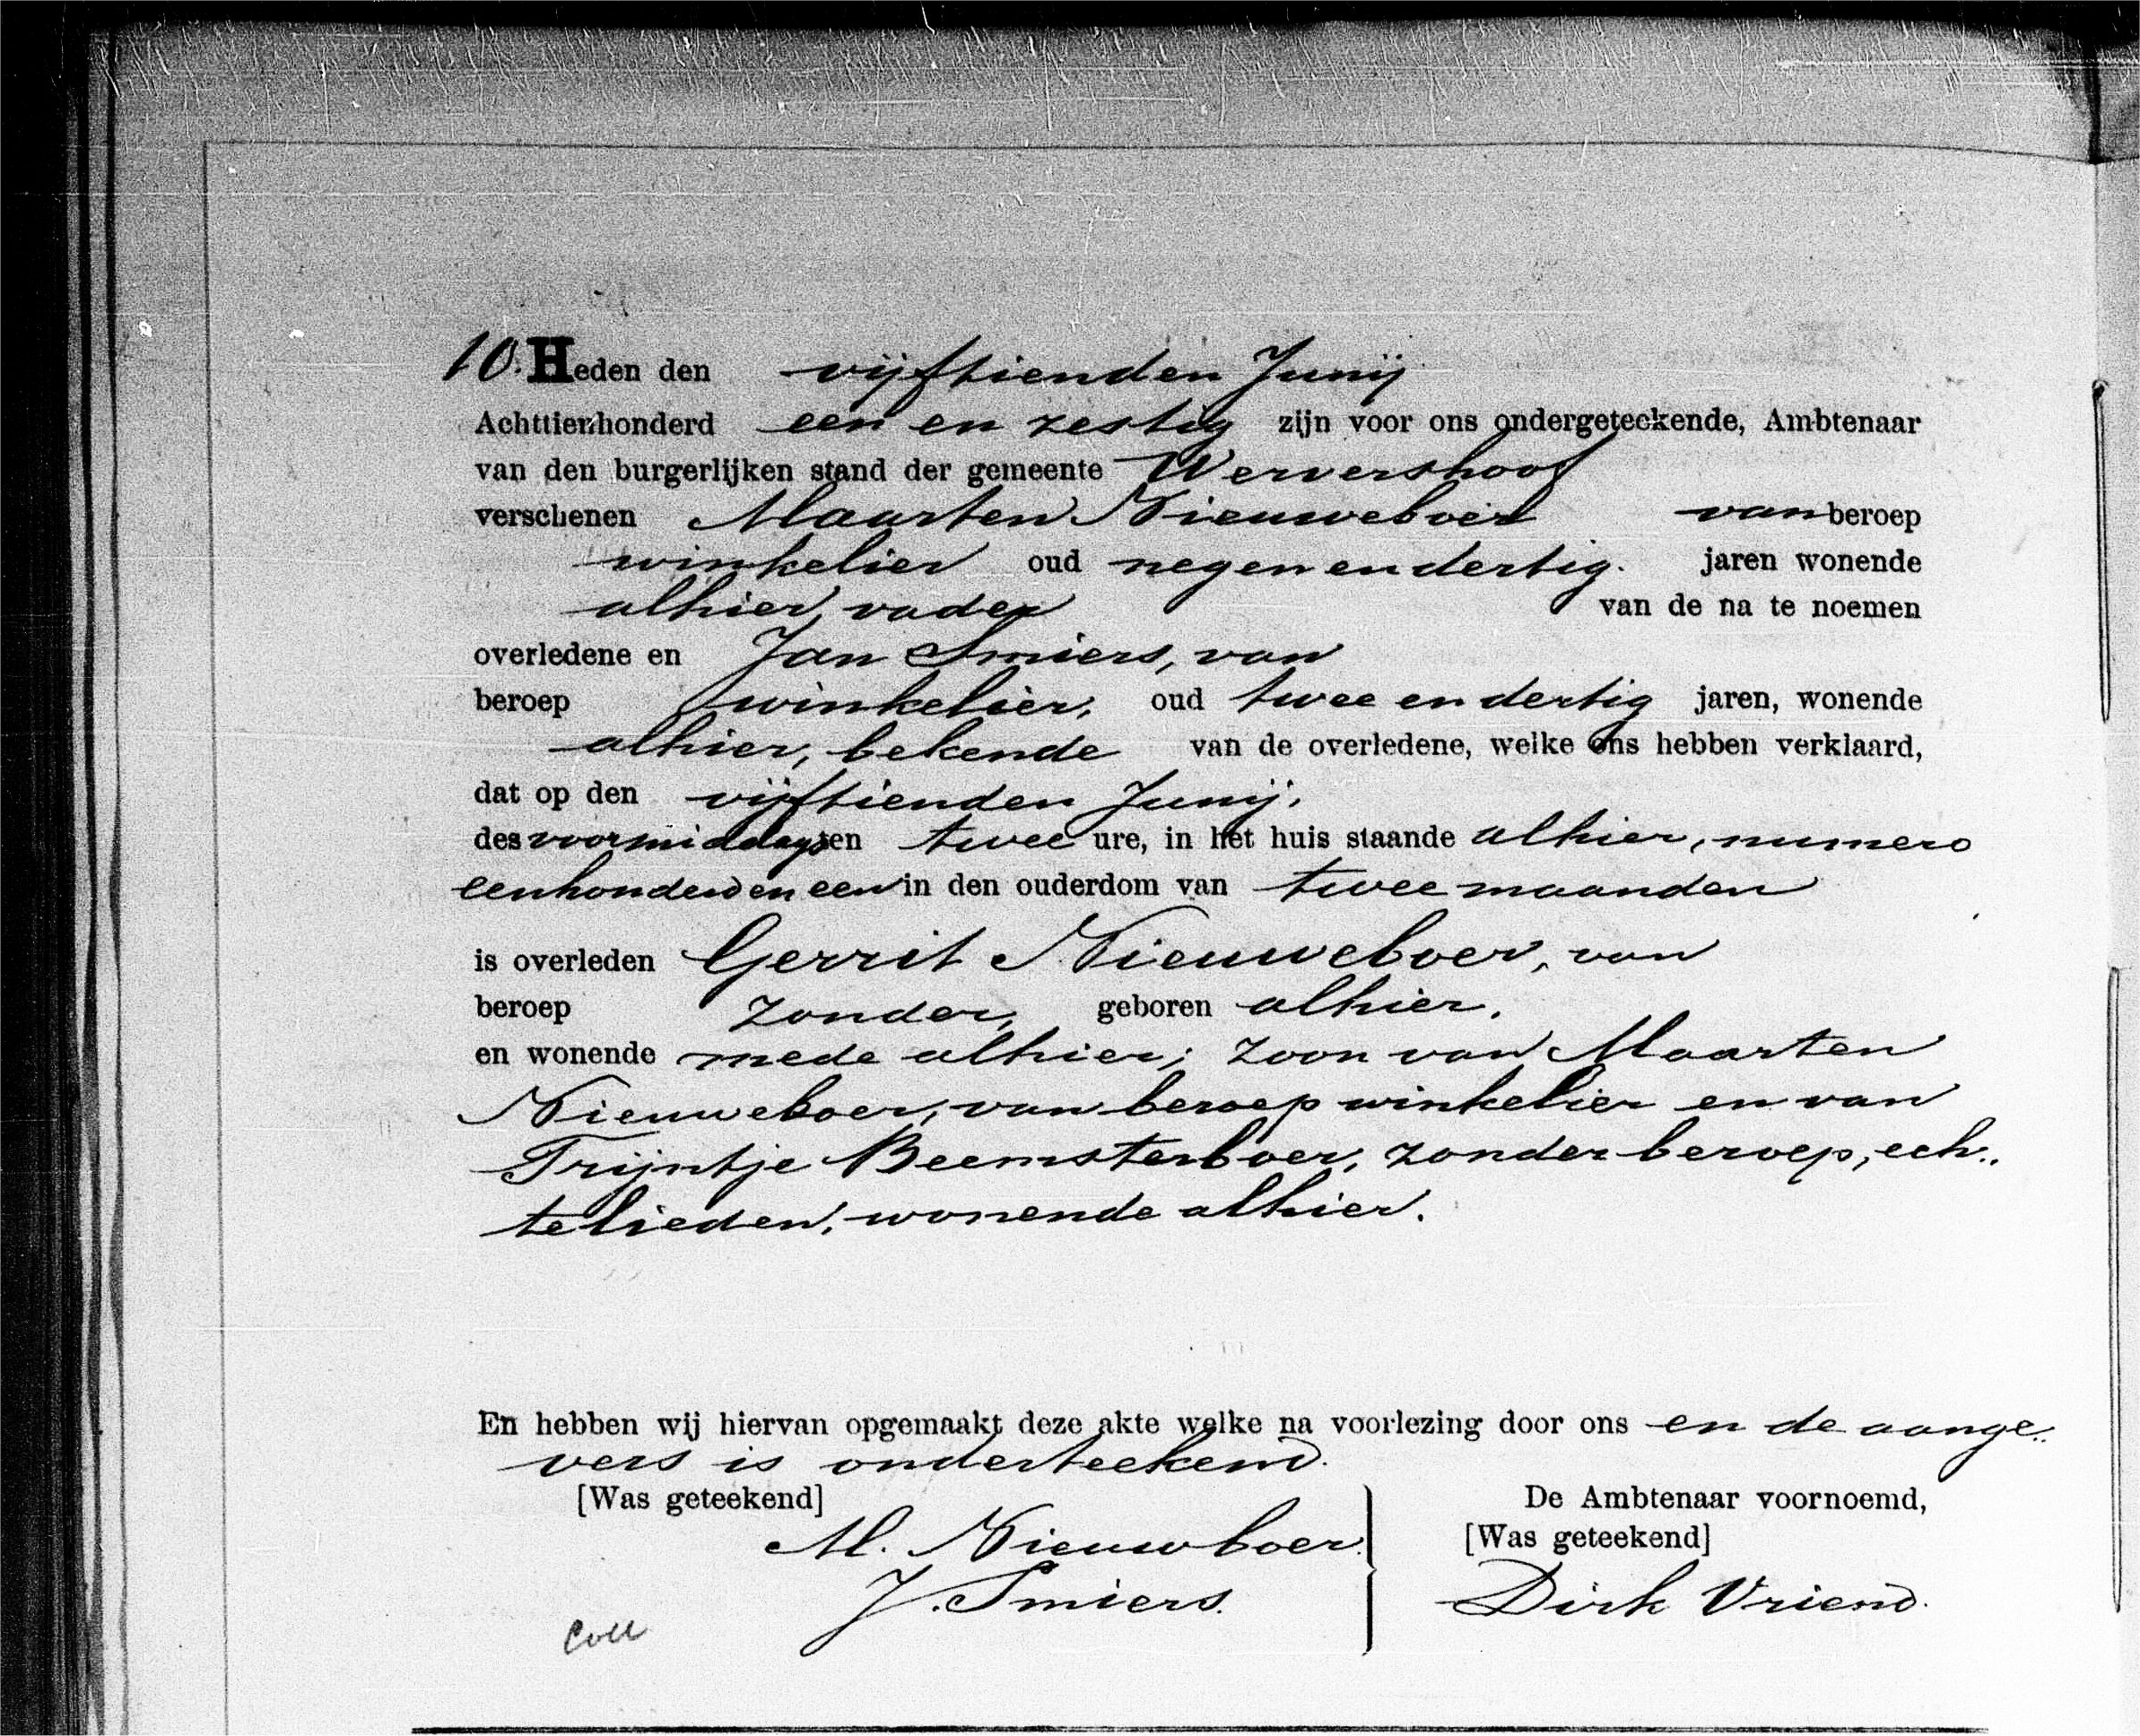 10. Heden den vijftienden Junij
Achttienhonderd een en zestig zijn voor ons ondergeteekende, Ambtenaar
van den burgerlijken stand der gemeente Wervershoof
verschenen Maarten Nieuweboer van beroep
winkelier oud negenendertig. jaren wonende
alhier, vader van de na te noemen
overledene en Jan Smiers, van
beroep winkelier, oud twee en dertig jaren, wonende
alhier, bekende van de overledene, welke ons hebben verklaard,
dat op den vijftienden Junij,
des voormiddags ten twee ure, in het huis staande alhier, numero
eenhonderd en een in den ouderdom van twee maanden
is overleden Gerrit Nieuweboer, van
beroep zonder, geboren alhier,
en wonende mede alhier; zoon van Maarten
Nieuweboer, van beroep winkelier en van
Trijntje Beemsterboer, zonder beroep, ech..
telieden, wonende alhier.
En hebben wij hiervan opgemaakt deze akte welke na voorlezing door ons en de aange..
vers is onderteekend.
[Was geteekend] De Ambtenaar voornoemd,
M. Nieuwboer. [Was geteekend]
J. Smiers. Dirk Vriend.
Coll